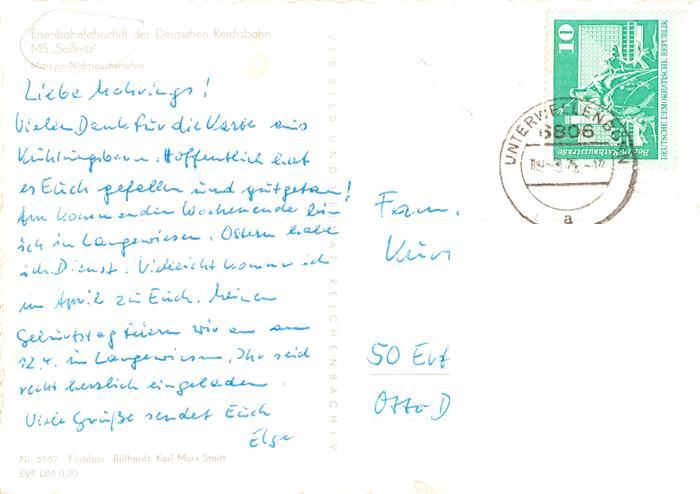 Eisenbahnfährschiff der Deutschen Reichsbahn
MS „Saßnitz"
Mitropa-Nichtrauchersalon
Liebe Mehrings!
Vielen Dank für die Karte aus
Kühlungsborn. Hoffentlich hat
es Euch gefallen und gutgetan!
Am kommenden Wochenende bin
ich in Langewiesen. Ostern habe
ich Dienst. Vielleicht komme ich
im April zu Euch. Meinen
Geburtstag feiern wir am
12.4. in Langewiesen. Ihr seid
recht herzlich eingeladen.
Viele Grüße sendet Euch
Elge
Nr. 5167 Farbfoto: Billhardt, Karl-Marx-Stadt
EVP DM 0.20
VEB BILD UND HEIMAT REICHENBACH i. V.
10
DEUTSCHE DEMOKRATISCHE REPUBLIK
Berlin, Rathausstraße
UNTERWELLENBORN
6806
a
Fam.
50 Erf
Otto-D